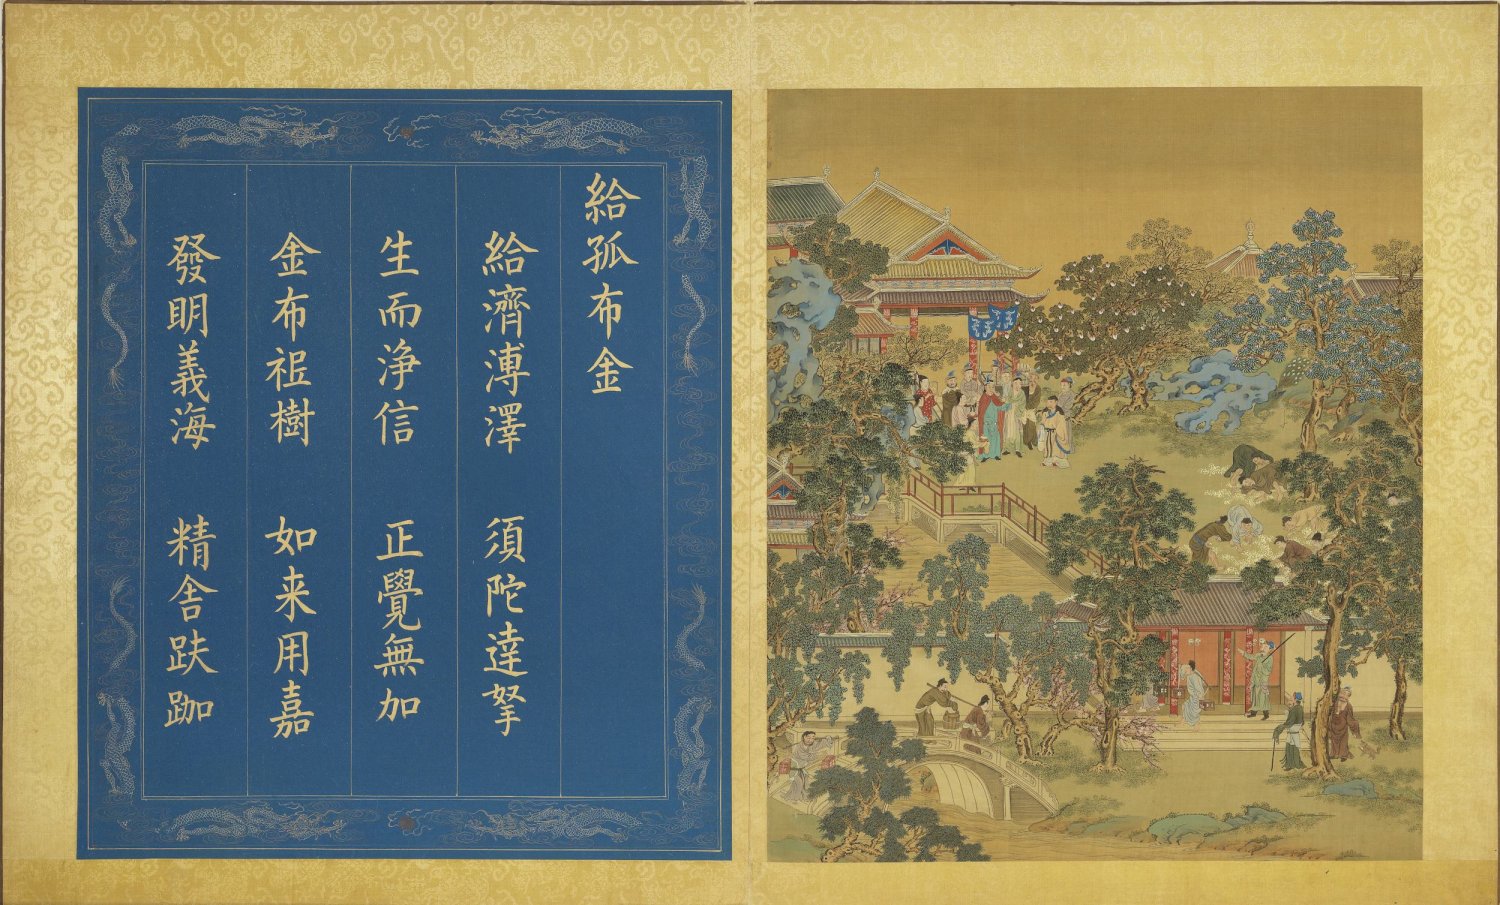 給孤布金
給濟溥澤 須陀達拏
生而浄信 正覺無加
金布祇樹 如来用嘉
發明義海 精舎趺跏